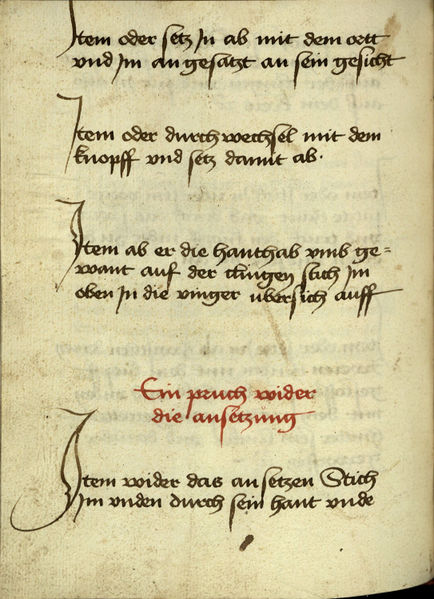 Item oder setz In ab mit dem ortt
vnd Im angesatzt an sein gesicht
Item oder durchwechsel mit dem
knopff vnd setz damit ab ·
Item ab er die hanthab vmb ge=
want auf der clingen stich Im
oben In die vinger vbersich auff
Ein pruch wider
die ansetzung
Item wider das ansetzen Stich
Im vnden durch sein hant vnde